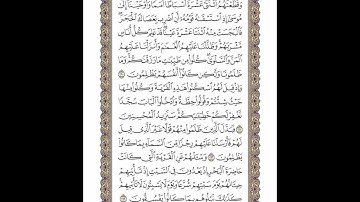 وَقَطَّعْنَٰهُمُ ٱثْنَتَىْ عَشْرَةَ أَسْبَاطًا أُمَمًا ۚ وَأَوْحَيْنَآ إِلَىٰ
مُوسَىٰٓ إِذِ ٱسْتَسْقَىٰهُ قَوْمُهُۥٓ أَنِ ٱضْرِب بِّعَصَاكَ ٱلْحَجَرَ ۖ
فَٱنۢبَجَسَتْ مِنْهُ ٱثْنَتَا عَشْرَةَ عَيْنًا ۖ قَدْ عَلِمَ كُلُّ أُنَاسٍ
مَّشْرَبَهُمْ ۚ وَظَلَّلْنَا عَلَيْهِمُ ٱلْغَمَٰمَ وَأَنزَلْنَا عَلَيْهِمُ
ٱلْمَنَّ وَٱلسَّلْوَىٰ ۖ كُلُوا۟ مِن طَيِّبَٰتِ مَا رَزَقْنَٰكُمْ ۚ وَمَا
ظَلَمُونَا وَلَٰكِن كَانُوٓا۟ أَنفُسَهُمْ يَظْلِمُونَ ١٦٠
وَإِذْ قِيلَ لَهُمُ ٱسْكُنُوا۟ هَٰذِهِ ٱلْقَرْيَةَ وَكُلُوا۟ مِنْهَا
حَيْثُ شِئْتُمْ وَقُولُوا۟ حِطَّةٌ وَٱدْخُلُوا۟ ٱلْبَابَ سُجَّدًا
نَّغْفِرْ لَكُمْ خَطِيٓـَٰٔتِكُمْ ۚ سَنَزِيدُ ٱلْمُحْسِنِينَ ١٦١
فَبَدَّلَ ٱلَّذِينَ ظَلَمُوا۟ مِنْهُمْ قَوْلًا غَيْرَ ٱلَّذِى قِيلَ
لَهُمْ فَأَرْسَلْنَا عَلَيْهِمْ رِجْزًا مِّنَ ٱلسَّمَآءِ بِمَا كَانُوا۟
يَظْلِمُونَ ١٦٢ وَسْـَٔلْهُمْ عَنِ ٱلْقَرْيَةِ ٱلَّتِى كَانَتْ
حَاضِرَةَ ٱلْبَحْرِ إِذْ يَعْدُونَ فِى ٱلسَّبْتِ إِذْ تَأْتِيهِمْ
حِيتَانُهُمْ يَوْمَ سَبْتِهِمْ شُرَّعًا وَيَوْمَ لَا يَسْبِتُونَ ۙ لَا تَأْتِيهِمْ ۚ
كَذَٰلِكَ نَبْلُوهُم بِمَا كَانُوا۟ يَفْسُقُونَ ١٦٣